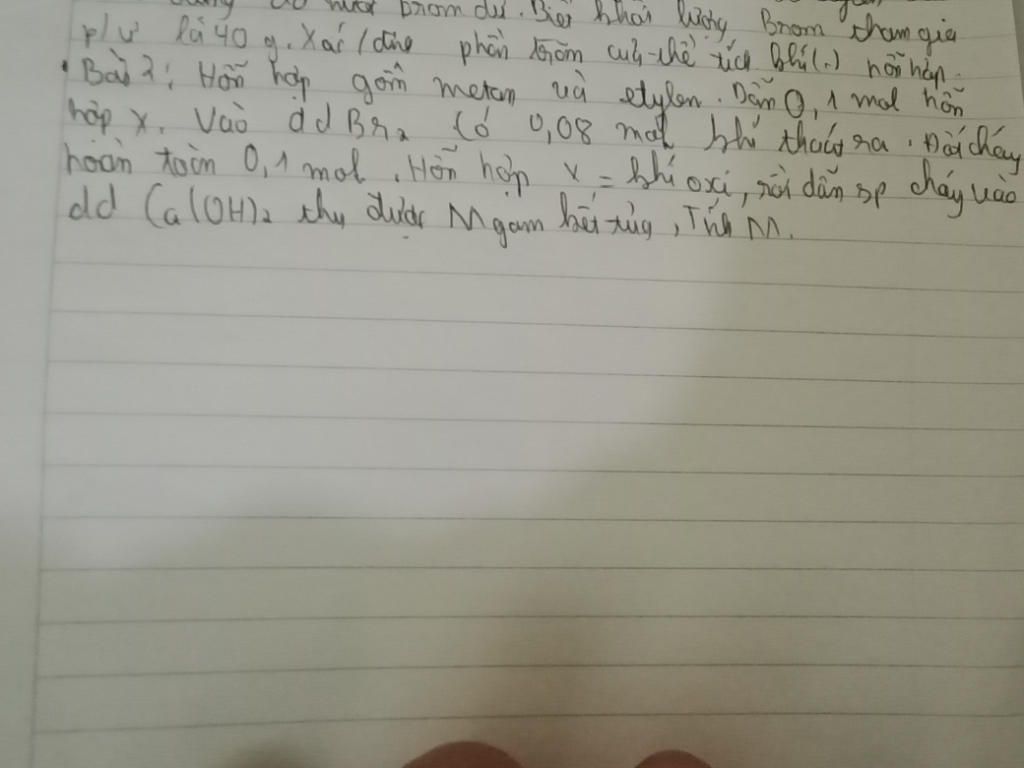 nước brom dư. Biết khối lượng Brom tham gia
p/ư là 40 g. Xác/định phần trăm của thể tích khí (.) hỗn hợp.
Bài 2: Hỗn hợp gồm metan và etylen. Dẫn 0,1 mol hỗn
hợp x. Vào dd Br₂ Có 0,08 mol khí thoát ra. Đốt cháy
hoàn toàn 0,1 mol. Hỗn hợp x = khí oxi, rồi dẫn sp cháy vào
dd Ca(OH)₂ thu được M gam kết tủa, Tính M.